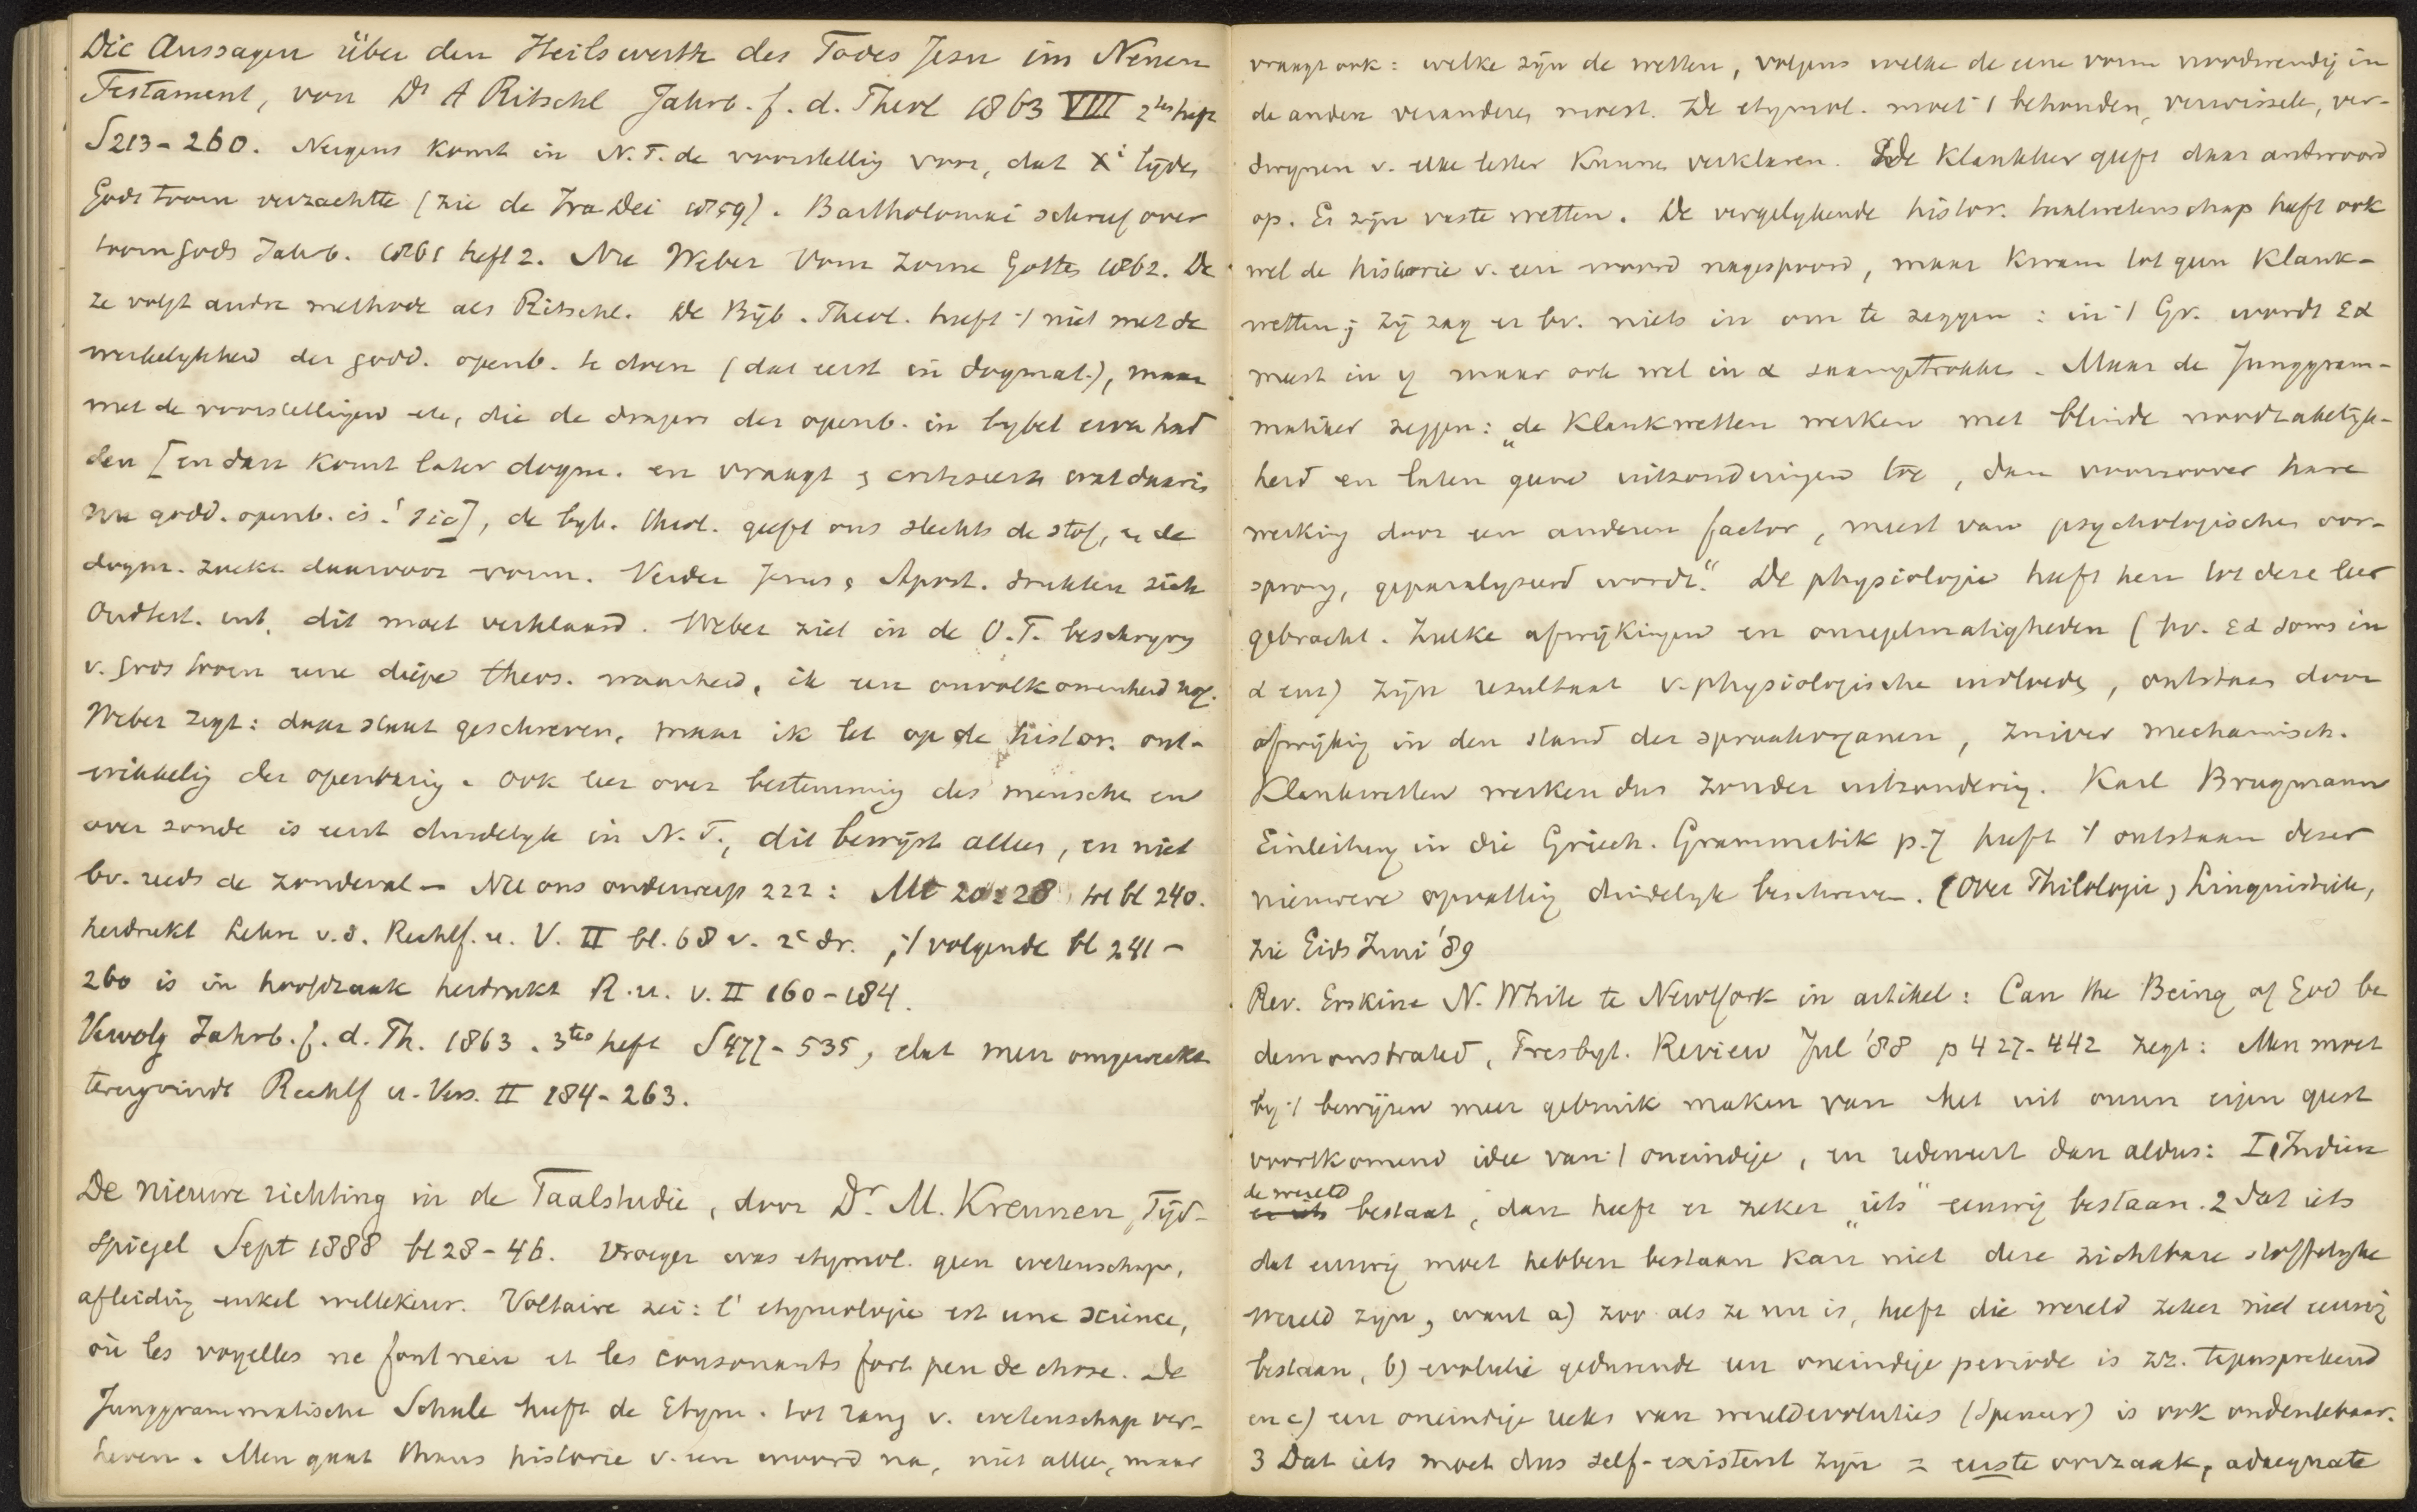 Die Aussagen über den Heilswerth des Todes Jesu im Neuen
Testament, von Dr A Ritschl Jahrb. f. d. Theol 1863 VIII 2tes heft
S213-260. Nergens komt in N.T. de voorstellig voor, dat Xi lijden
Gods toorn verzachtte (zie de Ira Dei 1859). Bartholomäi schreef over
toorn gods Jahrb. 1861 heft 2. Nu Weber Vom Zorne Gottes 1862. De
ze volgt andere methode als Ritschl. De Bijb. Theol. heeft ·/ niet met de
werkelykheid der godd. openb. te doen (dat eerst in dogmat.), maar
met de voorstellingen etc, die de dragers der openb. in bybel ervan had
den [en dan komt later dogm. en vraagt en critiseert wat daarin
nu godd. openb. is! sic], de byb. theol. geeft ons slechts de stof, en de
dogm. zoeke daarvoor vorm. Verder Jezus en Apost. drukten zich
Oudtest. uit, dit moet verklaard. Weber ziet in de O.T. beschryvg
v. Gods toorn eene diepe theos. waarheid, ik een onvolkomenheid nog.
Weber zegt: daar staat geschreven, maar ik let op de histor. ont-
wikkelig der openbarig. Ook leer over bestemmig des menschen en
over zonde is eerst duidelyk in N.T., dit bewijst alles, en niet
bv. reeds de zondeval – Nu ons onderwerp 222: Mt 20:28 tot bl 240.
herdrukt Lehre v.d. Rechtf. u. V. II bl. 68 v. 2e dr. ; ·/ volgende bl 241-
260 is in hoofdzaak herdrukt R. u. V. II 160-184.
Vervolg Jahrb. f. d. Th. 1863. 3tes heft S477-535, dat men omgewerkt
terugvindt Rechtf u. Vers. II 184-263.
De nieuwe richting in de Taalstudie, door Dr. M. Kreunen, Tijd-
spiegel Sept 1888 bl 28-46. Vroeger was etymol. geen wetenschap,
afleidig enkel willekeur. Voltaire zei: l'etymologie est une science,
où les voyelles ne font rien et les consonants fort peu de chose. De
Junggrammatische Schule heeft de Etym. tot rang v. wetenschap ver-
heven. Men gaat thans historie v. een woord na, niet alleen, maar
vraagt ook: welke zijn de wetten, volgens welke de eene vorm noodwendig in
de andere veranderen moest. De etymol. moet ·/ behouden, verwisselen, ver-
dwynen v. elke letter kunnen verklaren. De Klankleer geeft daar antwoord
op. Er zijn vaste wetten. De vergelykende histor. taalwetenschap heeft ook
wel de historie v. een woord nagespoord, maar kwam tot geen Klank-
wetten; zij zag er bv. niets in om te zeggen: in ·/ Gr. wordt εα
meest in η maar ook wel in α saamgetrokken. Maar de Junggram-
matiker zeggen: „de Klankwetten werken met blinde noodzakelijk-
heid en laten geene uitzonderingen toe, dan voorzoover hare
werking door een anderen factor, meest van psychologischen oor-
sprong, geparalyseerd wordt.” De physiologie heeft hen tot deze leer
gebracht. Zulke afwijkingen en onregelmatigheden (bv. εα soms in
α enz) zijn resultaat v. physiologische invloeden, ontstaan door
afwijkig in den stand der spraakorganen, zuiver mechanisch.
Klankwetten werken dus zonder uitzonderig. Karl Brugmann
Einleitung in die Griech. Grammatik p.7 heeft ·/ ontstaan dezer
nieuwere opvattig duidelyk beschreven. (Over Philologie en Linguistiek,
zie Gids Juni '89
Rev. Erskine N. White te NewYork in artikel: Can the Being of God be
demonstrated, Presbyt. Review Jul '88 p 427-442 zegt: Men moet
by ·/ bewijzen meer gebruik maken van het uit onzen eigen geest
voortkomend idee van ·/ oneindige, en redeneert dan aldus: I, Indien
de wereld
er iets bestaat, dan heeft er zeker „iets” eeuwig bestaan. 2 Dat iets
dat eeuwig moet hebben bestaan kan niet deze zichtbare stoffelyke
wereld zijn, want a) zoo als ze nu is, heeft die wereld zeker niet eeuwig
bestaan, b) evolutie gedurende een oneindige periode is zz. tegensprekend
en c) een oneindige reeks van wereldevoluties (Spencer) is ook ondenkbaar.
3 Dat iets moet dus self-existent zijn = eerste oorzaak, adaequate